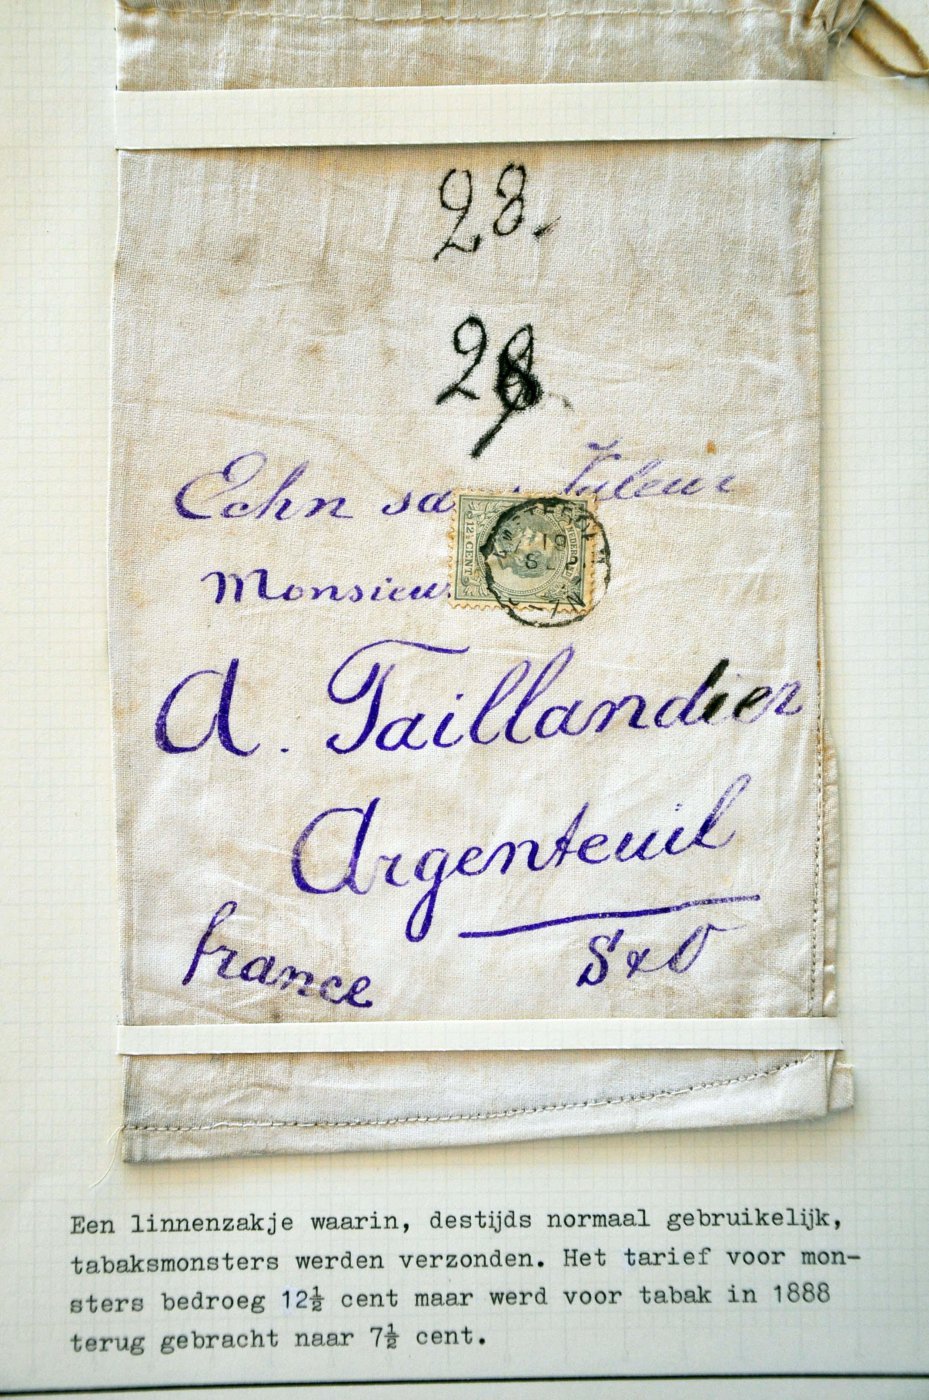 28.
28
Echn sa Valeur
Monsieu
12½ CENT
A. Taillandier
Argenteuil
france
S & O
Een linnenzakje waarin, destijds normaal gebruikelijk,
tabaksmonsters werden verzonden. Het tarief voor mon-
sters bedroeg 12½ cent maar werd voor tabak in 1888
terug gebracht naar 7½ cent.